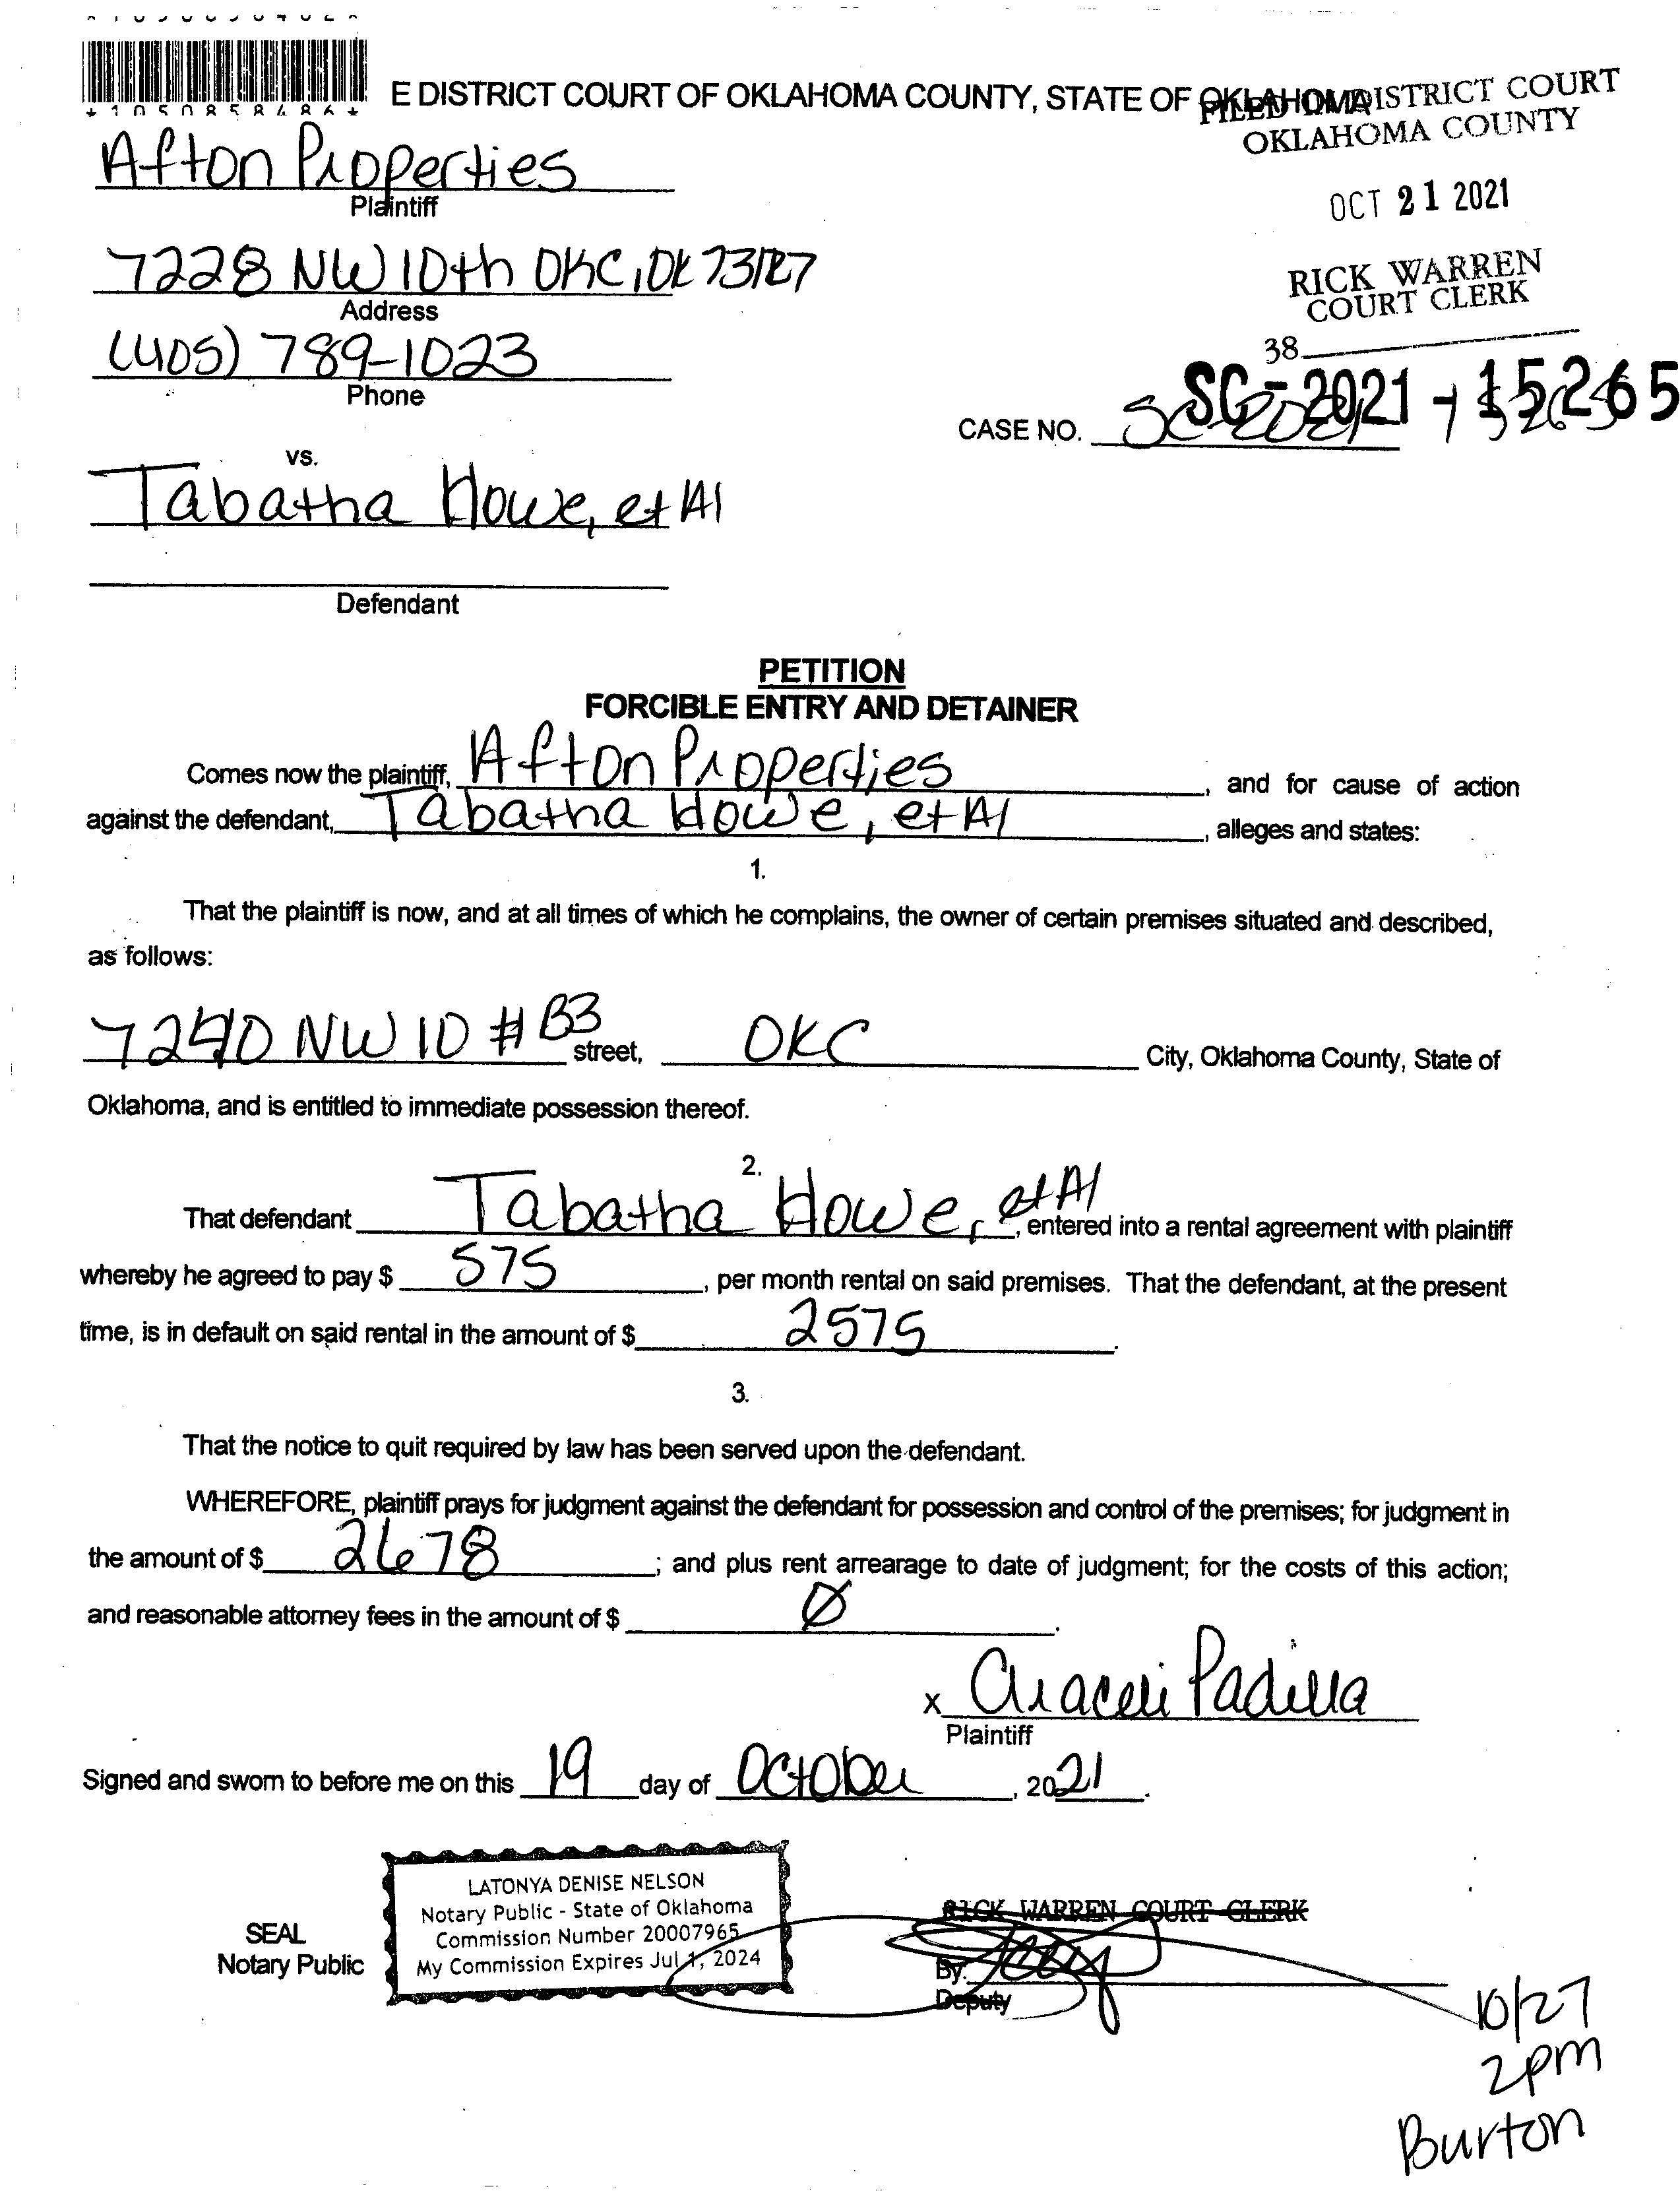 *1050858486*
E DISTRICT COURT OF OKLAHOMA COUNTY, STATE OF OKLAHOMA
FILED IN DISTRICT COURT
OKLAHOMA COUNTY
OCT 21 2021
RICK WARREN
COURT CLERK
38
Afton Properties
Plaintiff
7228 NW 10th OKC, OK 73127
Address
(405) 789-1023
Phone
CASE NO. SC-2021-15265
SC-2021-15265
vs.
Tabatha Howe, et Al
Defendant
PETITION
FORCIBLE ENTRY AND DETAINER
Comes now the plaintiff, Afton Properties, and for cause of action
against the defendant, Tabatha Howe, et Al, alleges and states:
1.
That the plaintiff is now, and at all times of which he complains, the owner of certain premises situated and described,
as follows:
NW 10 # B3 street, OKC City, Oklahoma County, State of
Oklahoma, and is entitled to immediate possession thereof.
2.
That defendant Tabatha Howe, et Al, entered into a rental agreement with plaintiff
whereby he agreed to pay $ 575, per month rental on said premises. That the defendant, at the present
time, is in default on said rental in the amount of $ 2575.
3.
That the notice to quit required by law has been served upon the defendant.
WHEREFORE, plaintiff prays for judgment against the defendant for possession and control of the premises; for judgment in
the amount of $ 2678; and plus rent arrearage to date of judgment; for the costs of this action;
and reasonable attorney fees in the amount of $ Ø.
x Araceli Padilla
Plaintiff
Signed and sworn to before me on this 19 day of October, 2021.
SEAL
Notary Public
LATONYA DENISE NELSON
Notary Public - State of Oklahoma
Commission Number 20007965
My Commission Expires Jul 1, 2024
RICK WARREN COURT CLERK
By:
Deputy
10/27
2pm
Burton